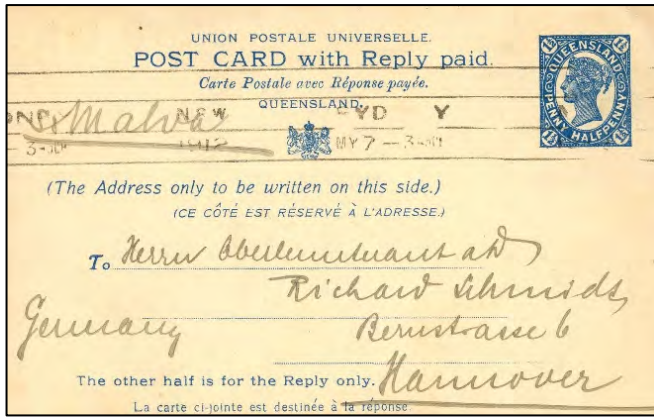 UNION POSTALE UNIVERSELLE.
POST CARD with Reply paid.
Carte Postale avec Réponse payée.
QUEENSLAND.
QUEENSLAND
1½ 1½
PENNY HALFPENNY
1½ 1½
Malwa NEW SYD Y
3- 1912 MY 7 - 3-
(The Address only to be written on this side.)
(CE CÔTÉ EST RÉSERVÉ À L'ADRESSE.)
To Herrn Oberleutnant a D
Richard Schmidt,
Germany Bernstrasse 6
The other half is for the Reply only. Hannover
La carte ci-jointe est destinée à la réponse.